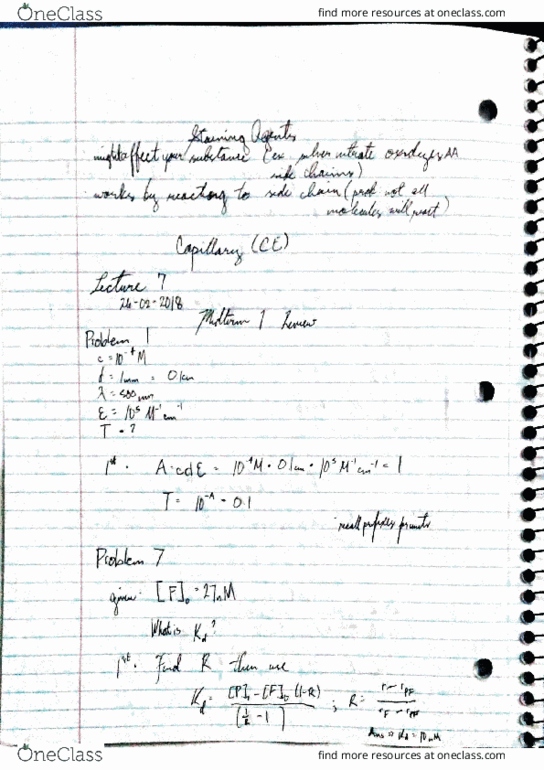 OneClass
find more resources at oneclass.com
Staining Agents
might effect your substance (ex silver nitrate oxidizes AA
side chains)
works by reacting to side chain (prob not all
molecules will react)
Capillary (CE)
Lecture 7
26-02-2018
Midterm 1 Review
Problem 1
c = 10⁻⁴ M
d = 1mm = 0.1cm
λ = 500 nm
ε = 10⁵ M⁻¹ cm⁻¹
T = ?
1st. A = cdε = 10⁻⁴M · 0.1cm · 10⁵ M⁻¹cm⁻¹ = 1
T = 10⁻ᴬ = 0.1
recall prefixes
Problem 7
given [F]₀ = 27nM
What is Kd?
1st. Find R then use
Kd = [P]₀ - [F]₀ (1-R) / (1/R - 1) ; R = r - rPF / rF - rPF
Ans = Kd = 10nM
OneClass
find more resources at oneclass.com